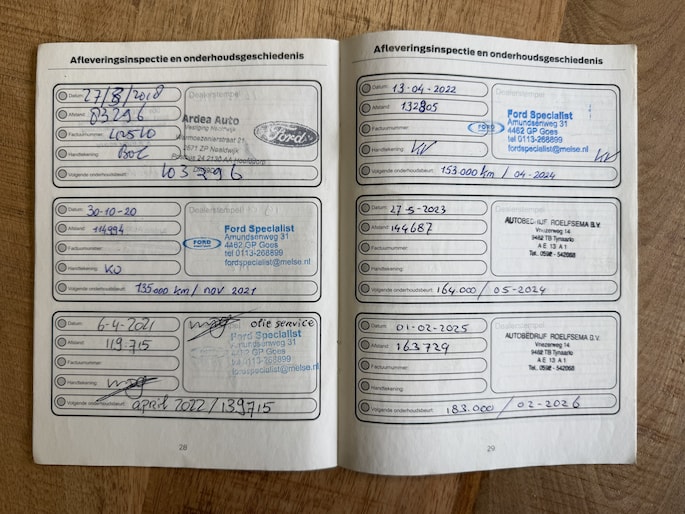 Afleveringsinspectie en onderhoudsgeschiedenis
Datum: 27/8/2018
Dealerstempel:
Afstand: 83296
Ardea Auto
Vestiging Naaldwijk
Ford
Factuurnummer:
2671 ZP Naaldwijk
Handtekening:
Volgende onderhoudsbeurt: 103296
Datum: 30-10-20
Dealerstempel:
Afstand: 114994
Ford Specialist
Amundsenweg 31
FORD
4462 GP Goes
Factuurnummer:
tel 0113-268899
fordspecialist@melse.nl
Handtekening: KV
Volgende onderhoudsbeurt: 135000 km / nov 2021
Datum: 6-4-2021
olie service
Afstand: 119.715
Ford Specialist
Amundsenweg 31
4462 GP Goes
Factuurnummer:
tel 0113-268899
fordspecialist@melse.nl
Handtekening:
Volgende onderhoudsbeurt: april 2022 / 139715
28
Afleveringsinspectie en onderhoudsgeschiedenis
Datum: 13-04-2022
Dealerstempel:
Afstand: 132805
Ford Specialist
Amundsenweg 31
FORD
4462 GP Goes
Factuurnummer:
tel 0113-268899
fordspecialist@melse.nl
Handtekening: KV
KV
Volgende onderhoudsbeurt: 153.000 km / 04-2024
Datum: 27-5-2023
Dealerstempel:
Afstand: 144687
AUTOBEDRIJF ROELFSEMA B.V.
Vriezerweg 14
9482 TB Tynaarlo
Factuurnummer:
AE 13 A1
Tel. 0592 - 542068
Handtekening:
Volgende onderhoudsbeurt: 164.000 / 05-2024
Datum: 01-02-2025
Dealerstempel:
Afstand: 163729
AUTOBEDRIJF ROELFSEMA B.V.
Vriezerweg 14
9482 TB Tynaarlo
Factuurnummer:
AE 13 A 1
Tel. 0592 - 542068
Handtekening:
Volgende onderhoudsbeurt: 183.000 / 02-2026
29